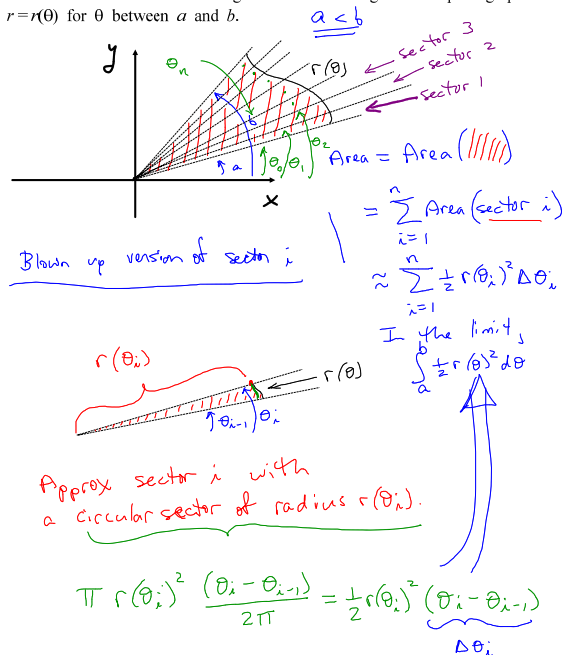 r = r(θ) for θ between a and b.
a < b
y
θn
r(θ)
sector 3
sector 2
sector 1
b
a
θ0
θ1
θ2
x
Area = Area( )
= Σ i=1 n Area(sector i)
≈ Σ i=1 n 1/2 r(θi)² Δθi
In the limit,
∫ a b 1/2 r(θ)² dθ
Blown up version of sector i
r(θi)
r(θ)
θi-1
θi
Approx sector i with
a circular sector of radius r(θi).
π r(θi)² (θi - θi-1)/2π = 1/2 r(θi)² (θi - θi-1)
Δθi